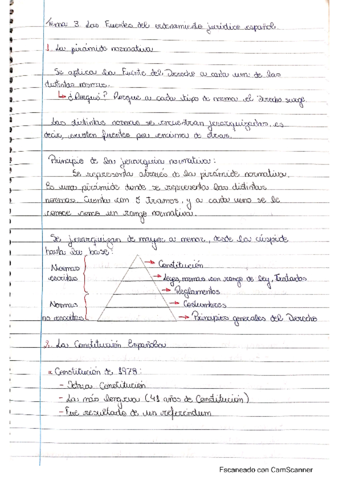 Tema 3. Las Fuentes del ordenamiento jurídico español
1. La pirámide normativa
Se aplica la Fuente del Derecho a cada una de las
distintas normas.
↳ ¿Porqué? Porque a cada tipo de norma el Derecho surge
Las distintas normas se encuentran jerarquizadas, es
decir, existen fuentes por encima de otras.
Principio de la jerarquía normativa:
Se representa através de la pirámide normativa.
Es una pirámide donde se representa las distintas
normas. Cuenta con 5 tramos, y a cada uno se le
conoce como un rango normativo.
Se jerarquizan de mayor a menor, desde la cúspide
hasta su base:
Normas escritas
→ Constitución
→ Leyes, normas con rango de Ley, Tratados
→ Reglamentos
Normas no escritas
→ Costumbres
→ Principios generales del Derecho
2. La Constitución Española
Constitución de 1978:
- Constitución
- La más longeva (41 años de Constitución)
- Fue resultado de un referendum
Escaneado con CamScanner